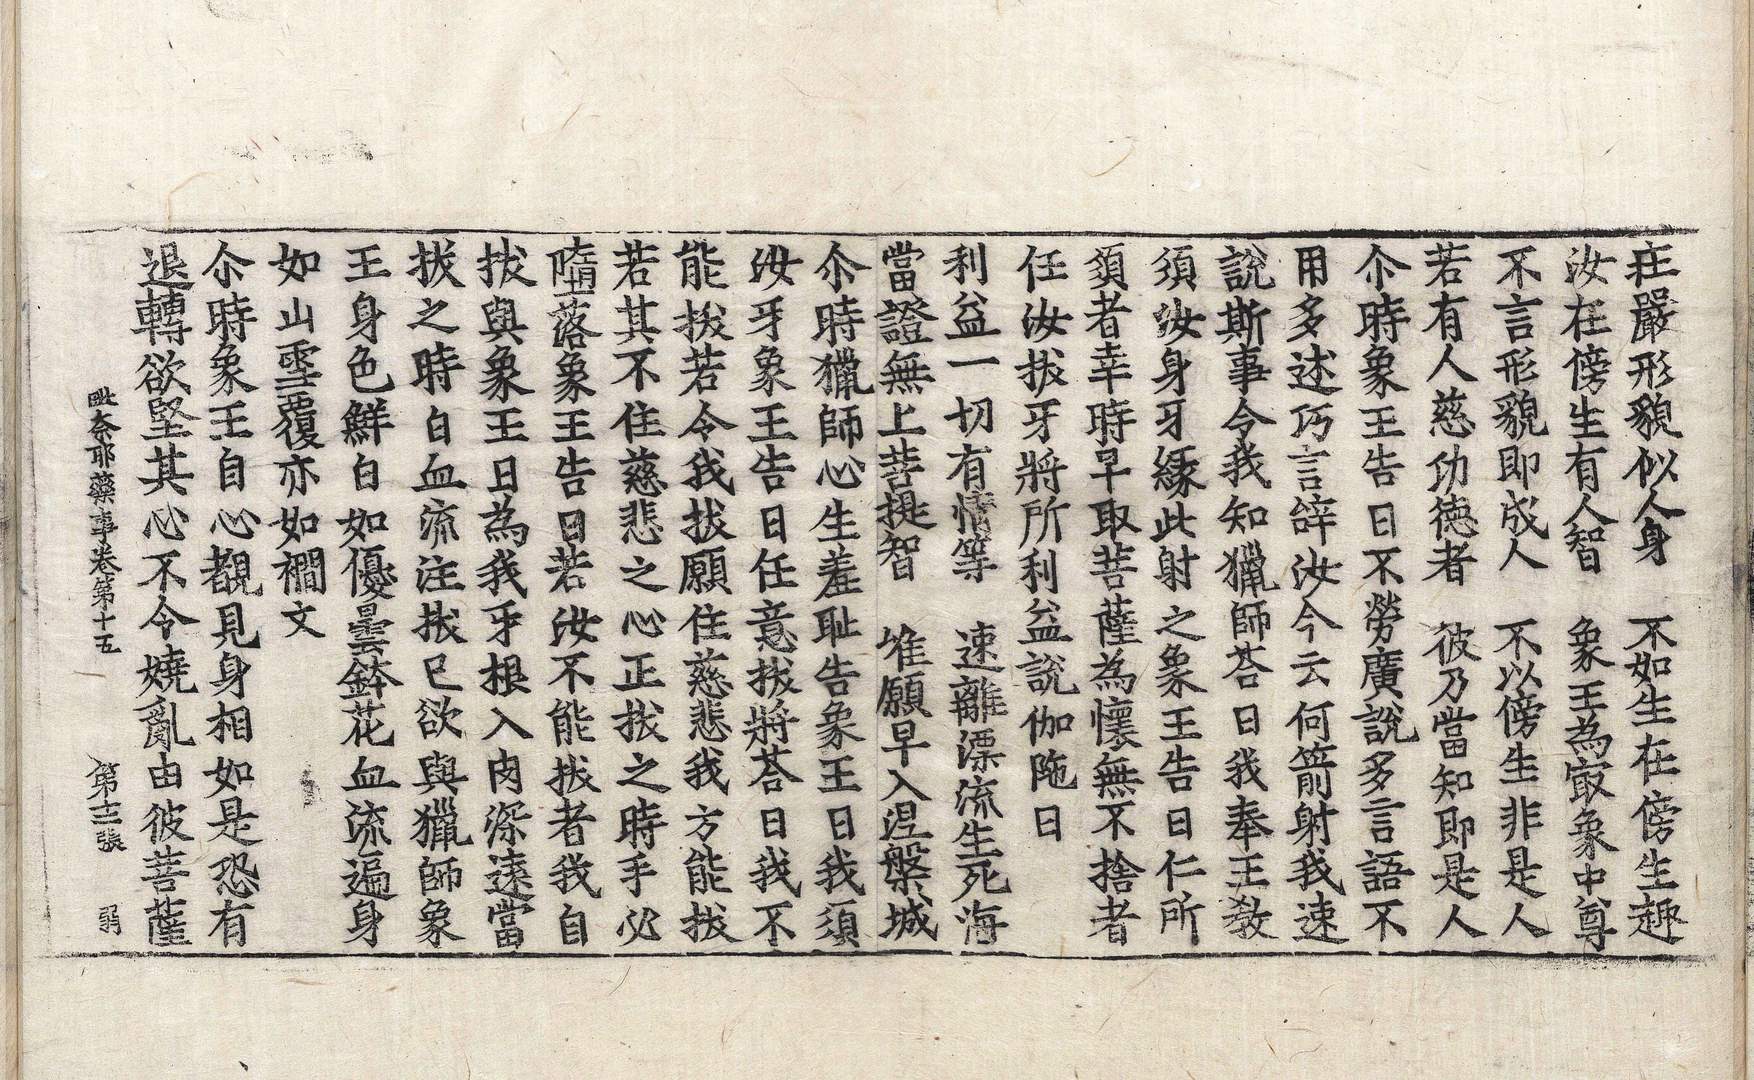 荘嚴形貌似人身　不如生在傍生趣
汝在傍生有人智　象王為㝡象中尊
不言形貌即成人　不以傍生非是人
若有人慈功德者　彼乃當知即是人
尒時象王告曰不勞廣說多言語不
用多述巧言辝汝今云何箭射我速
說斯事令我知獵師荅曰我奉王教
須汝身牙緣此射之象王告曰仁所
須者幸時早取菩薩為懷無不捨者
任汝拔牙將所利益說伽陁曰
利益一切有情等　速離漂流生死海
當證無上菩提智　惟願早入涅槃城
尒時獵師心生羞耻告象王曰我須
汝牙象王告曰任意拔將荅曰我不
能拔若令我拔願住慈悲我方能拔
若其不住慈悲之心正拔之時手必
墮落象王告曰若汝不能拔者我自
拔與象王曰為我牙根入肉深遠當
拔之時白血流注拔已欲與獵師象
王身色鮮白如優曇鉢花血流遍身
如山雪覆亦如襇文
尒時象王自心觀見身相如是恐有
退轉欲堅其心不令嬈亂由彼菩薩
毗奈耶藥事卷第十五　第十二張　弱